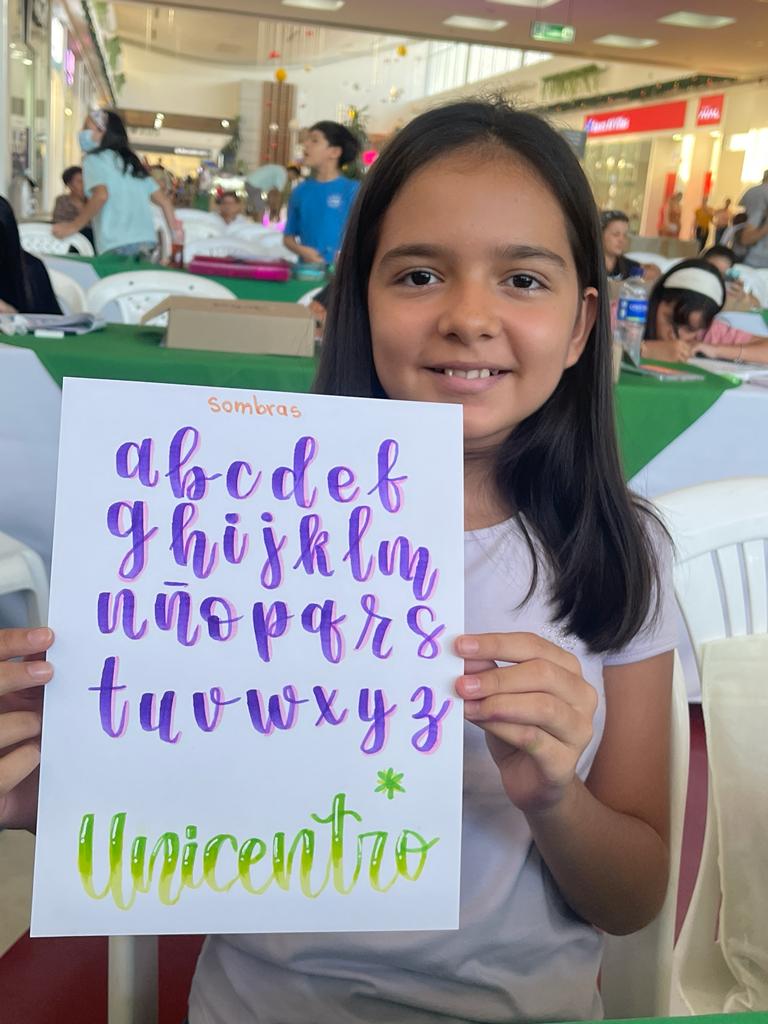 sombras
a b c d e f
g h i j k l m
n ñ o p q r s
t u v w x y z
Unicentro